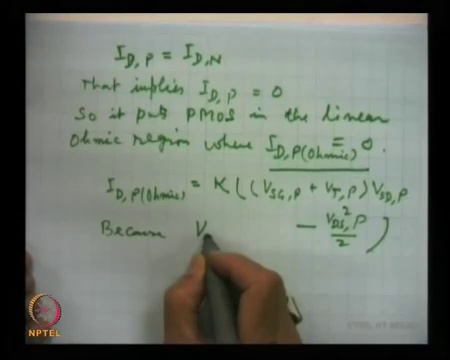 I_D,P = I_D,N
That implies I_D,P = 0
So it puts PMOS in the linear
Ohmic region where I_D,P(Ohmic) = 0.
I_D,P(Ohmic) = K((V_SG,P + V_T,P) V_SD,P
Because V - V_DS,P²/2)
NPTEL